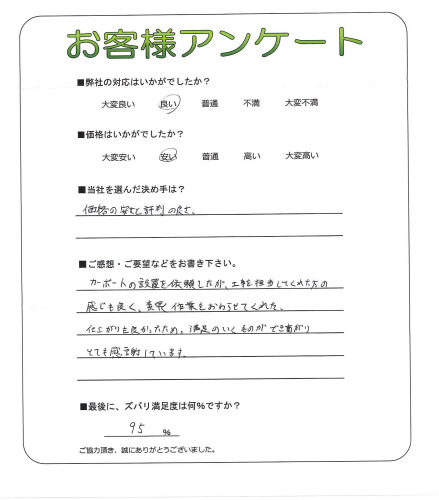 お客様アンケート
■弊社の対応はいかがでしたか？
大変良い 良い 普通 不満 大変不満
■価格はいかがでしたか？
大変安い 安い 普通 高い 大変高い
■当社を選んだ決め手は？
価格の安さと評判の良さ、
■ご感想・ご要望などをお書き下さい。
カーポートの設置を依頼したが、工事を担当してくれた方の
感じも良く、作業をおわらせてくれた。
仕上がりも良かったため、満足のいくものができ上がり
とても感謝しています
■最後に、ズバリ満足度は何％ですか？
95 ％
ご協力頂き、誠にありがとうございました。